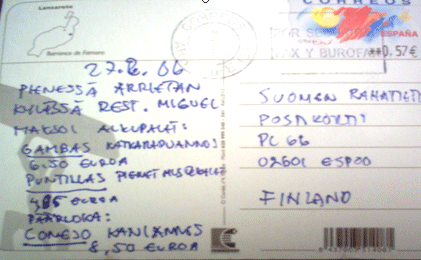 Lanzarote
Barranco de Famara
CORREOS
CORREOS
ESPAÑA
POR
X Y BUROFAX
**0,57€
27.2.06
PIENESSÄ ARRIETAN
KYLÄSSÄ REST. MIGUEL
MAKSOI ALKUPALAT:
GAMBAS KATKARAPUANNOS
6,50 EUROA
PUNTILLAS PIENET
4,85 EUROA
PÄÄRUOKA:
CONEJO KANIANNOS
8,50 EUROA
SUOMEN
POSTIKORTTI
PL 66
02601 ESPOO
FINLAND